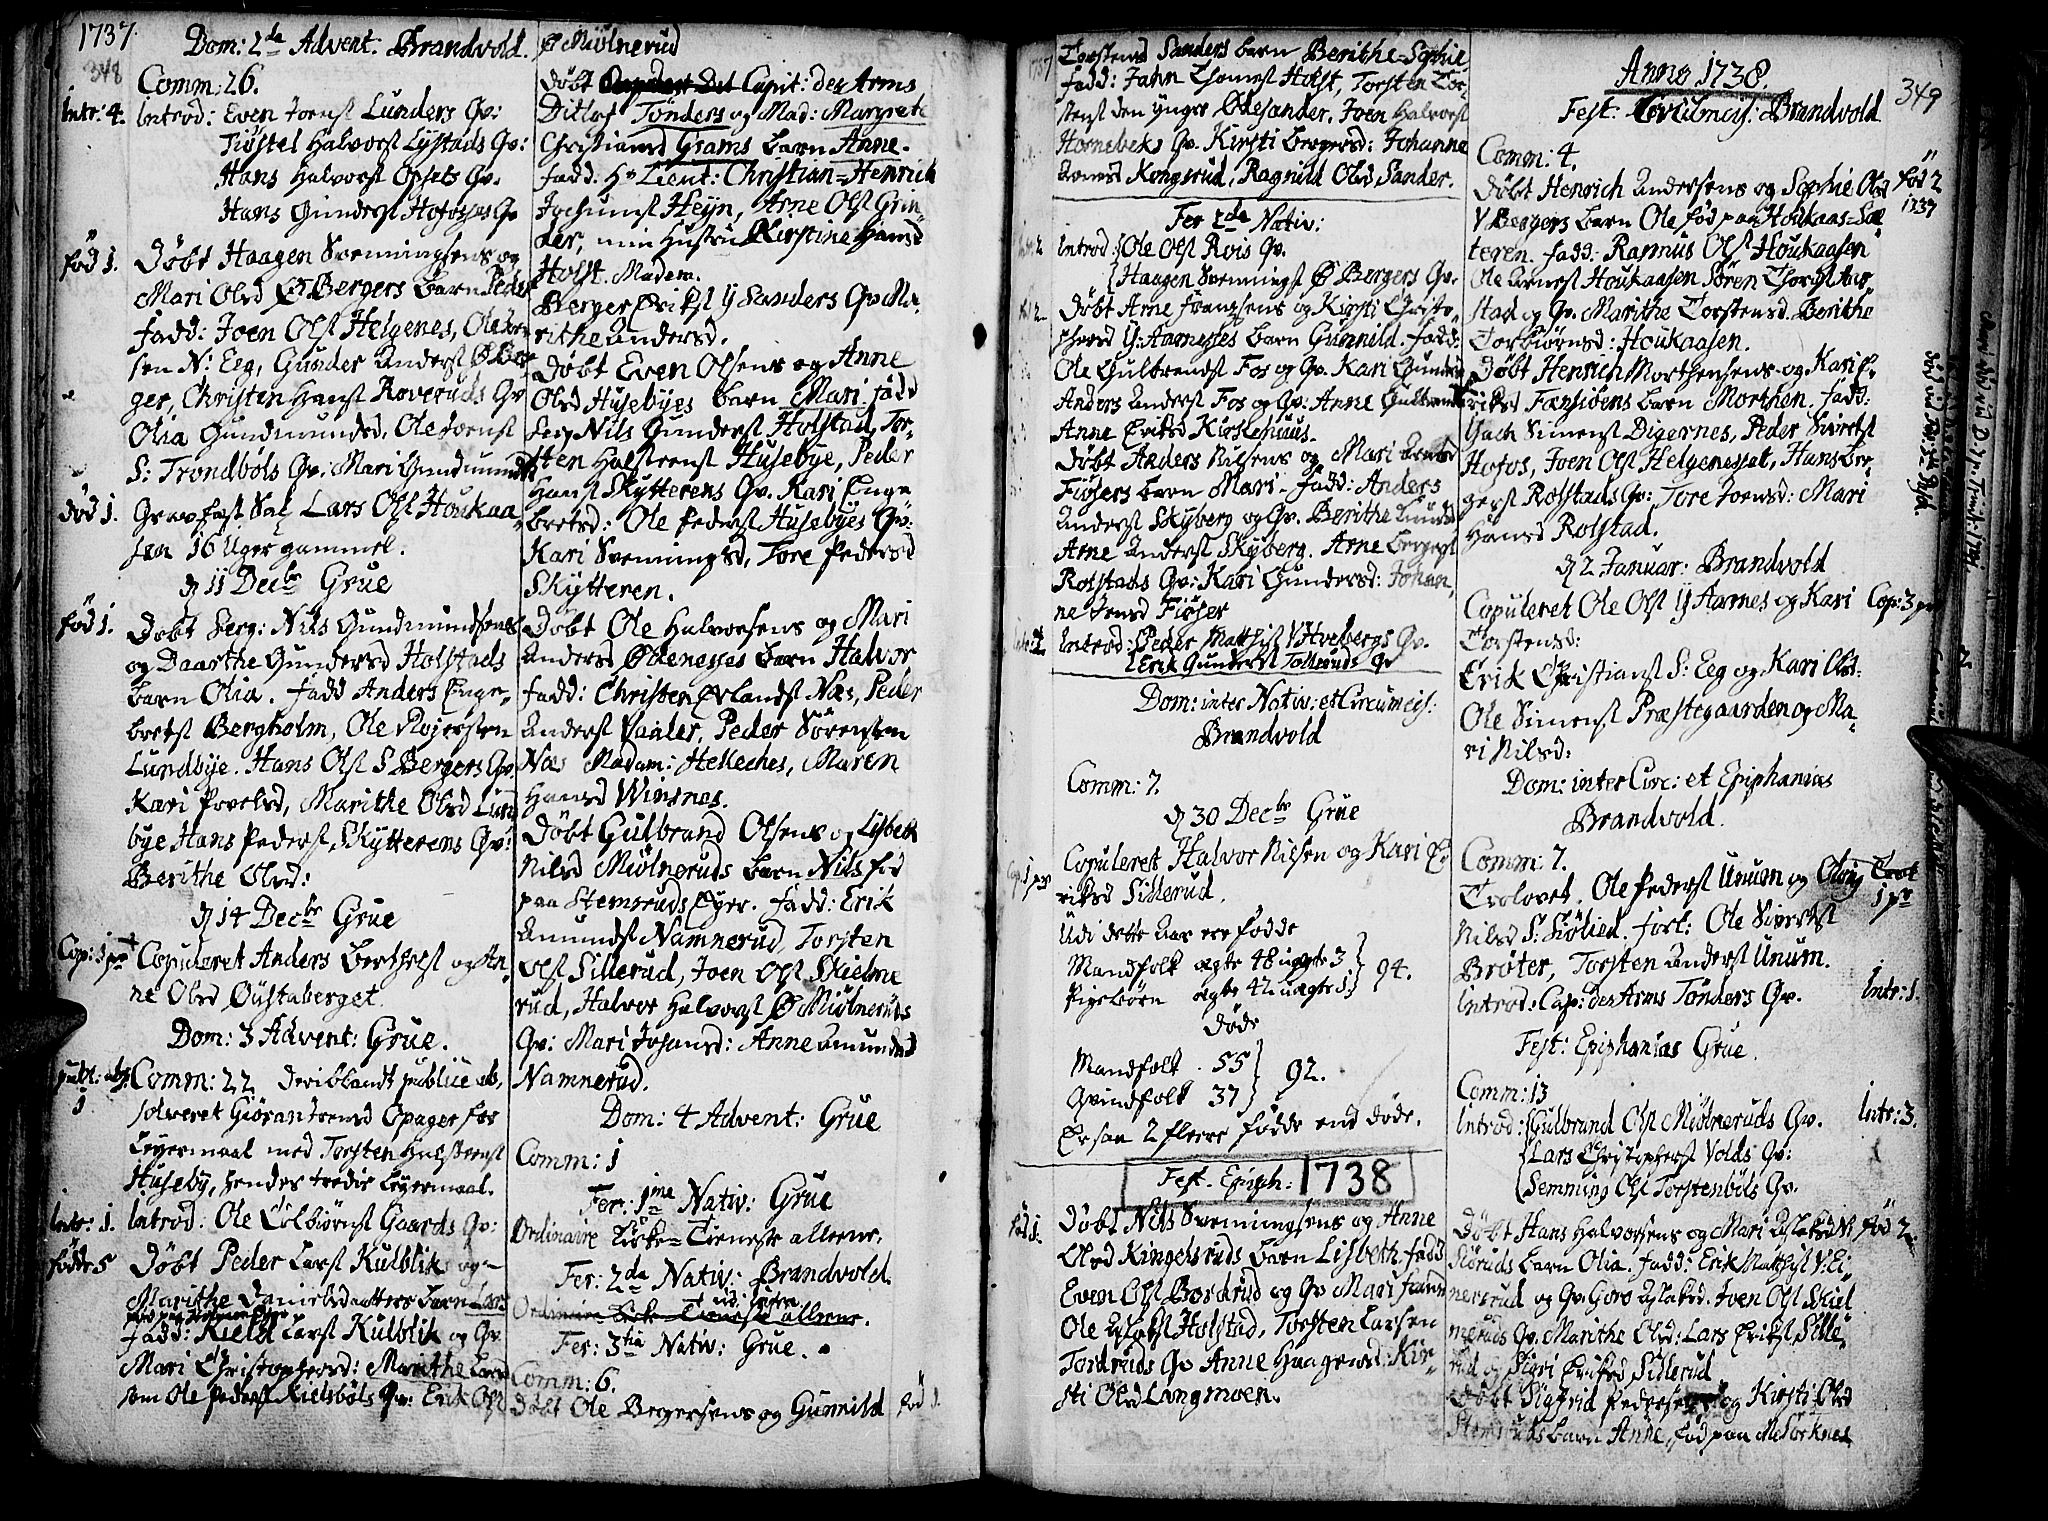 1737.
348
Dom: 2da Advent: Brandvold.
Comm: 26.
Intr: 4. Introd: Even Joenst Lunders Qv:
Tiøstel Halvorst Lystads Qv:
Hans Halvorst Opsets Qv.
Hans Gunderst Hofosses Qv
fød 1. Døbt Haagen Svenningsens og
Mari Olsd Ø Bergers barn Peder
fadd: Joen Olst Helgenes, Ole
sen N: Eeg, Gunder Anderst Ø Ber
ger, Christen Hanst Roveruds Qv
Olia Gundmundsd, Ole Joenst
S: Trondbøls Qv. Mari Gundmunds
død 1. Graef fæst Sal Lars Olst Houkaa
sen 16 Uger gammel.
d 11 Decbr Grue
fød 1. Døbt Serg: Nils Gundmundsens
og Daarthe Gundersd Holstads
barn Olia. fadd Anders Enge-
bretst Bergholm, Ole Rojersten
Lundbye. Hans Olst S Bergers Qv
Kari Povelsd, Marithe Olsd Lun
bye Hans Pederst Skytterens Qv:
Berithe Olsd:
d 14 Decbr Grue
Cop: 1 pr Copuleret Anders Berthelst og An,
ne Olsd Øustaberget.
Dom: 3 Advent: Grue.
publ: abs
1
Comm: 22 deriblandt publice ab,
solveret Giøran Jensd Opager for
Leyermaal med Torsten Halsteenst
Huseby, hendes tredie Leyermaal.
Intr: 1. Introd: Ole Colbiørnst Gaards Qv:
fødde 5 Døbt Peder Larst Kulblik og
Marithe Danielsdatters barn Lars
fadd: Kield Larst Kulblik og Qv.
Mari Christophersd: Marithe Larsd
som Ole Pederst Kielsbøls Qv: Erik Olst
Ø Miølnerud
Døbt Capit: des Arms
Ditlof Tønders og Mad: Margrete
Christiansd Grams barn Anne.
fadd: Hr Lieut: Christian=Henrich
Jochumst Heyn, Arne Olst Grin,
der, min Hustru Kirstine Hansd
Holst. Madam.
Berger Erikst Y Sanders Qv Ma,
rithe Andersd.
Døbt Even Olsens og Anne
Olsd Husebyes barn Mari fadd
Serg Nils Gunderst Holstad, Tor-
sten Halsteenst Husebye, Peder
Hanst Skytterens Qv. Kari Enge
bretsd: Ole Pederst Husebyes Qv:
Kari Svenningsd, Tore Pedersd
Skytteren.
Døbt Ole Halvorsens og Mari
Andersd Ødenesses barn Halvor
fadd: Christen Erlandst Næs, Peder
Anderst Vaaler, Peder Sørensten
Næs Madam: Hekeches, Maren
Hansd Winsnes.
Døbt Gulbrand Olsens og Lisbeth
Nilsd Miølneruds barn Nils fød
paa Stemsruds Eyer. fadd: Erik
Amundst Namnerud, Torsten
Olst Sillerud, Joen Olst Skielme
rud, Halvor Halvorst Ø Miølneruds
Qv: Mari Johansd: Anne Amundsd
Namnerud.
Dom: 4 Advent: Grue
Comm: 1
Fer: 1me Nativ: Grue
Ordinaire Kirke=Tieneste allene.
Fer: 2da Nativ: Brandvold.
Ordinaire Kirke Tieneste allene.
Fer: 3tia Nativ: Grue.
Comm: 6.
Døbt Ole Bergersens og Gunnild fød 1.
1737
Torstensd Sanders barn Berithe=Sophie
fadd: Jahn Thomest Holst, Torsten Tor-
stenst den yngre Ødesander, Joen Halvorst
Hornebeks Qv. Kirsti Bergersd: Johanne
Arnesd Kongsrud, Ragnild Olsd Sander.
Fer 2da Nativ:
Intr: 2 Introd: Ole Olst Rois Qv.
Haagen Svenningst Ø Bergers Qv.
Døbt Arne Frantzens og Kirsti Christo-
phersd Y: Aarnesses barn Gunnild. fadd:
Ole Gulbrandst Fos og Qv. Kari Gundersd
Anders Anderst Fos og Qv: Anne Gulbrandsd
Anne Eriksd Kirskehuus.
Døbt Anders Nilsens og Mari Arnesd
Fiøsers barn Mari. fadd: Anders
Anderst Skyberg og Qv. Berithe Knudsd
Arne Anderst Skyberg. Arne Bergerst
Rotstads Qv: Kari Gundersd: Johan,
ne Jensd Fiøser
Introd: Peder Matthist V Hvebergs Qv.
Erik Gunderst Tollerruds Qv
Dom: inter Nativ: et Circumcis:
Brandvold
Comm: 7.
d 30 Decbr Grue
Cop: 1 pr Copuleret Halvor Nilsen og Kari E,
riksd Sillerud.
Udi dette Aar ere fødde
Mandfolk ægte 48 uægte 3
Pigebørn ægte 42 uægte 1
94.
døde
Mandfolk . 55
Qvindfolk 37
92.
Er saa 2 fleere fødde end døde.
Fest. Epiph: 1738
fød 1. Døbt Nils Svenningsens og Anne
Olsd Kingelsruds barn Lisbeth. fadd
Even Olst Bordrud og Qv Mari Hansd
Ole Aslakst Holstad, Torsten Larsen
Tordruds Qv Anne Haagensd: Kir-
sti Olsd Langmoen.
Anno 1738.
349
Fest: Circumcis: Brandvold
Comm: 4.
fød 2
1737
Døbt Henrich Andersens og Sophie Olsd
V Bergers barn Ole fød paa Houkaas=Sæ
teren. fadd: Rasmus Olst Houkaasen
Ole Arnest Houkaasen Søren Thorst Aar,
stad og Qv. Marithe Torstensd. Berithe
Torbiørnsd: Houkaasen.
Døbt Henrich Morthensens og Kari E-
riksd Fænsiøens barn Morthen. fadd:
Isach Simenst Digernes, Peder Sivertst
Hofos, Joen Olst Helgenesset, Hans Ber
gerst Rolstads Qv: Tore Joensd: Mari
Hansd Rolstad.
d 2 Januar: Brandvold
Copuleret Ole Olst Y Aarnes og Kari Cop: 3 pr
Torstensd:
Erik Christianst S: Eeg og Kari Olsd:
Ole Simenst Præstegaarden og Ma-
ri Nilsd:
Dom: inter Circ: et Epiphanias
Brandvold.
Comm: 7.
Trolovet. Ole Pederst Unum og Olug Trol
1 pr
Nilsd S: Siølied. fort: Ole Sivertst
Brøter, Torsten Anderst Unum.
Introd: Cap: des Arms Tønders Qv. Intr: 1.
Fest: Epiphanias Grue.
Comm: 13
Introd: Gulbrand Olst Miølneruds Qv. Intr: 3.
Lars Christopherst Volds Qv:
Semming Olst Torstenbøls Qv.
Døbt Hans Halvorsens og Mari Aslaksd N fød 2
Støruds barn Olia. fadd: Erik Matthist V: Ei,
nersrud og Qv. Goro Aslaksd. Joen Olst Skiel
meruds Qv. Marithe Olsd: Lars Erikst Sille,
rud og Sigri Eriksd Sillerud
Døbt Sigfrid Pedersens og Kirsti Olsd
Stemsruds barn Anne, fød paa MeTorknes